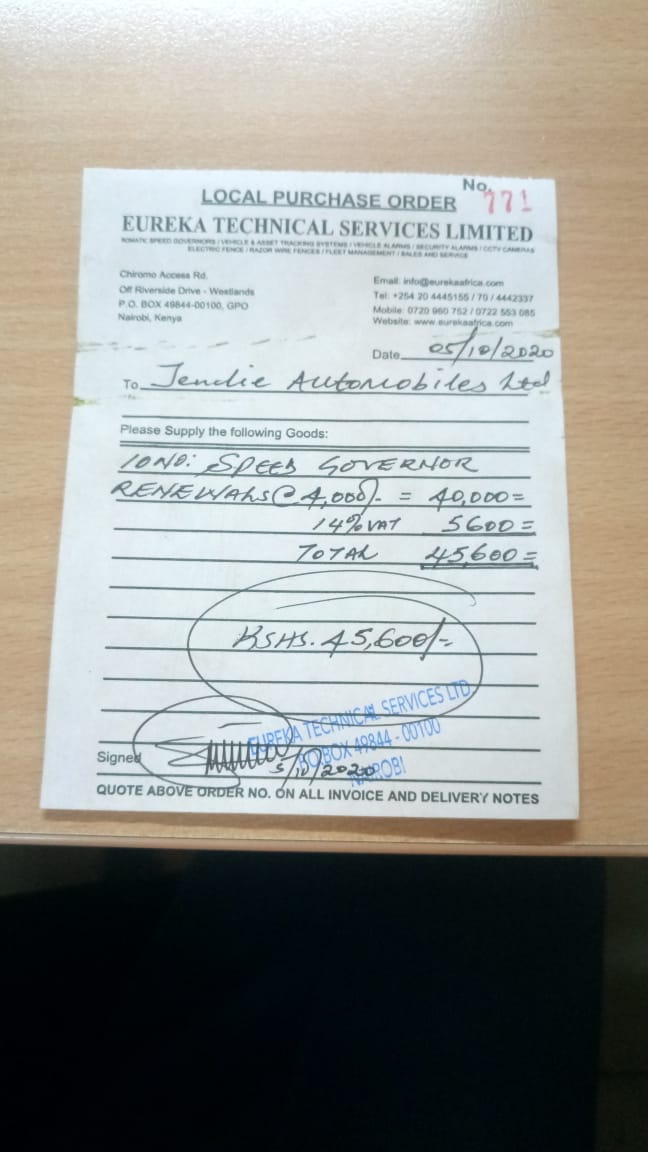 No. 771
LOCAL PURCHASE ORDER
EUREKA TECHNICAL SERVICES LIMITED
ROMATIC SPEED GOVERNORS / VEHICLE & ASSET TRACKING SYSTEMS / VEHICLE ALARMS / SECURITY ALARMS / CCTV CAMERAS
ELECTRIC FENCE / RAZOR WIRE FENCES / FLEET MANAGEMENT / SALES AND SERVICE
Chiromo Access Rd.
Off Riverside Drive - Westlands
P.O. BOX 49844-00100, GPO
Nairobi, Kenya
Email: info@eurekaafrica.com
Tel: +254 20 4445155 / 70 / 4442337
Mobile: 0720 960 752 / 0722 553 085
Website: www.eurekaafrica.com
Date 05/10/2020
To Jendie Automobiles Ltd
Please Supply the following Goods:
10NO: SPEED GOVERNOR
RENEWALS @ 4,000/- = 40,000=
14% VAT 5600=
TOTAL 45,600=
KSHS. 45,600/=
EUREKA TECHNICAL SERVICES LTD
P.O. BOX 49844 - 00100
NAIROBI
Signed 5/10/2020
QUOTE ABOVE ORDER NO. ON ALL INVOICE AND DELIVERY NOTES